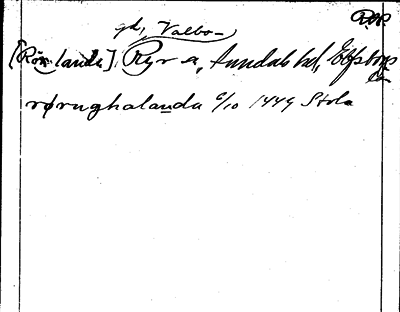 gd, Valbo-
[Rör landa], Ryr s, Sundals hd, Elfsborgs
rørughalanda 6/10 1449 Stola